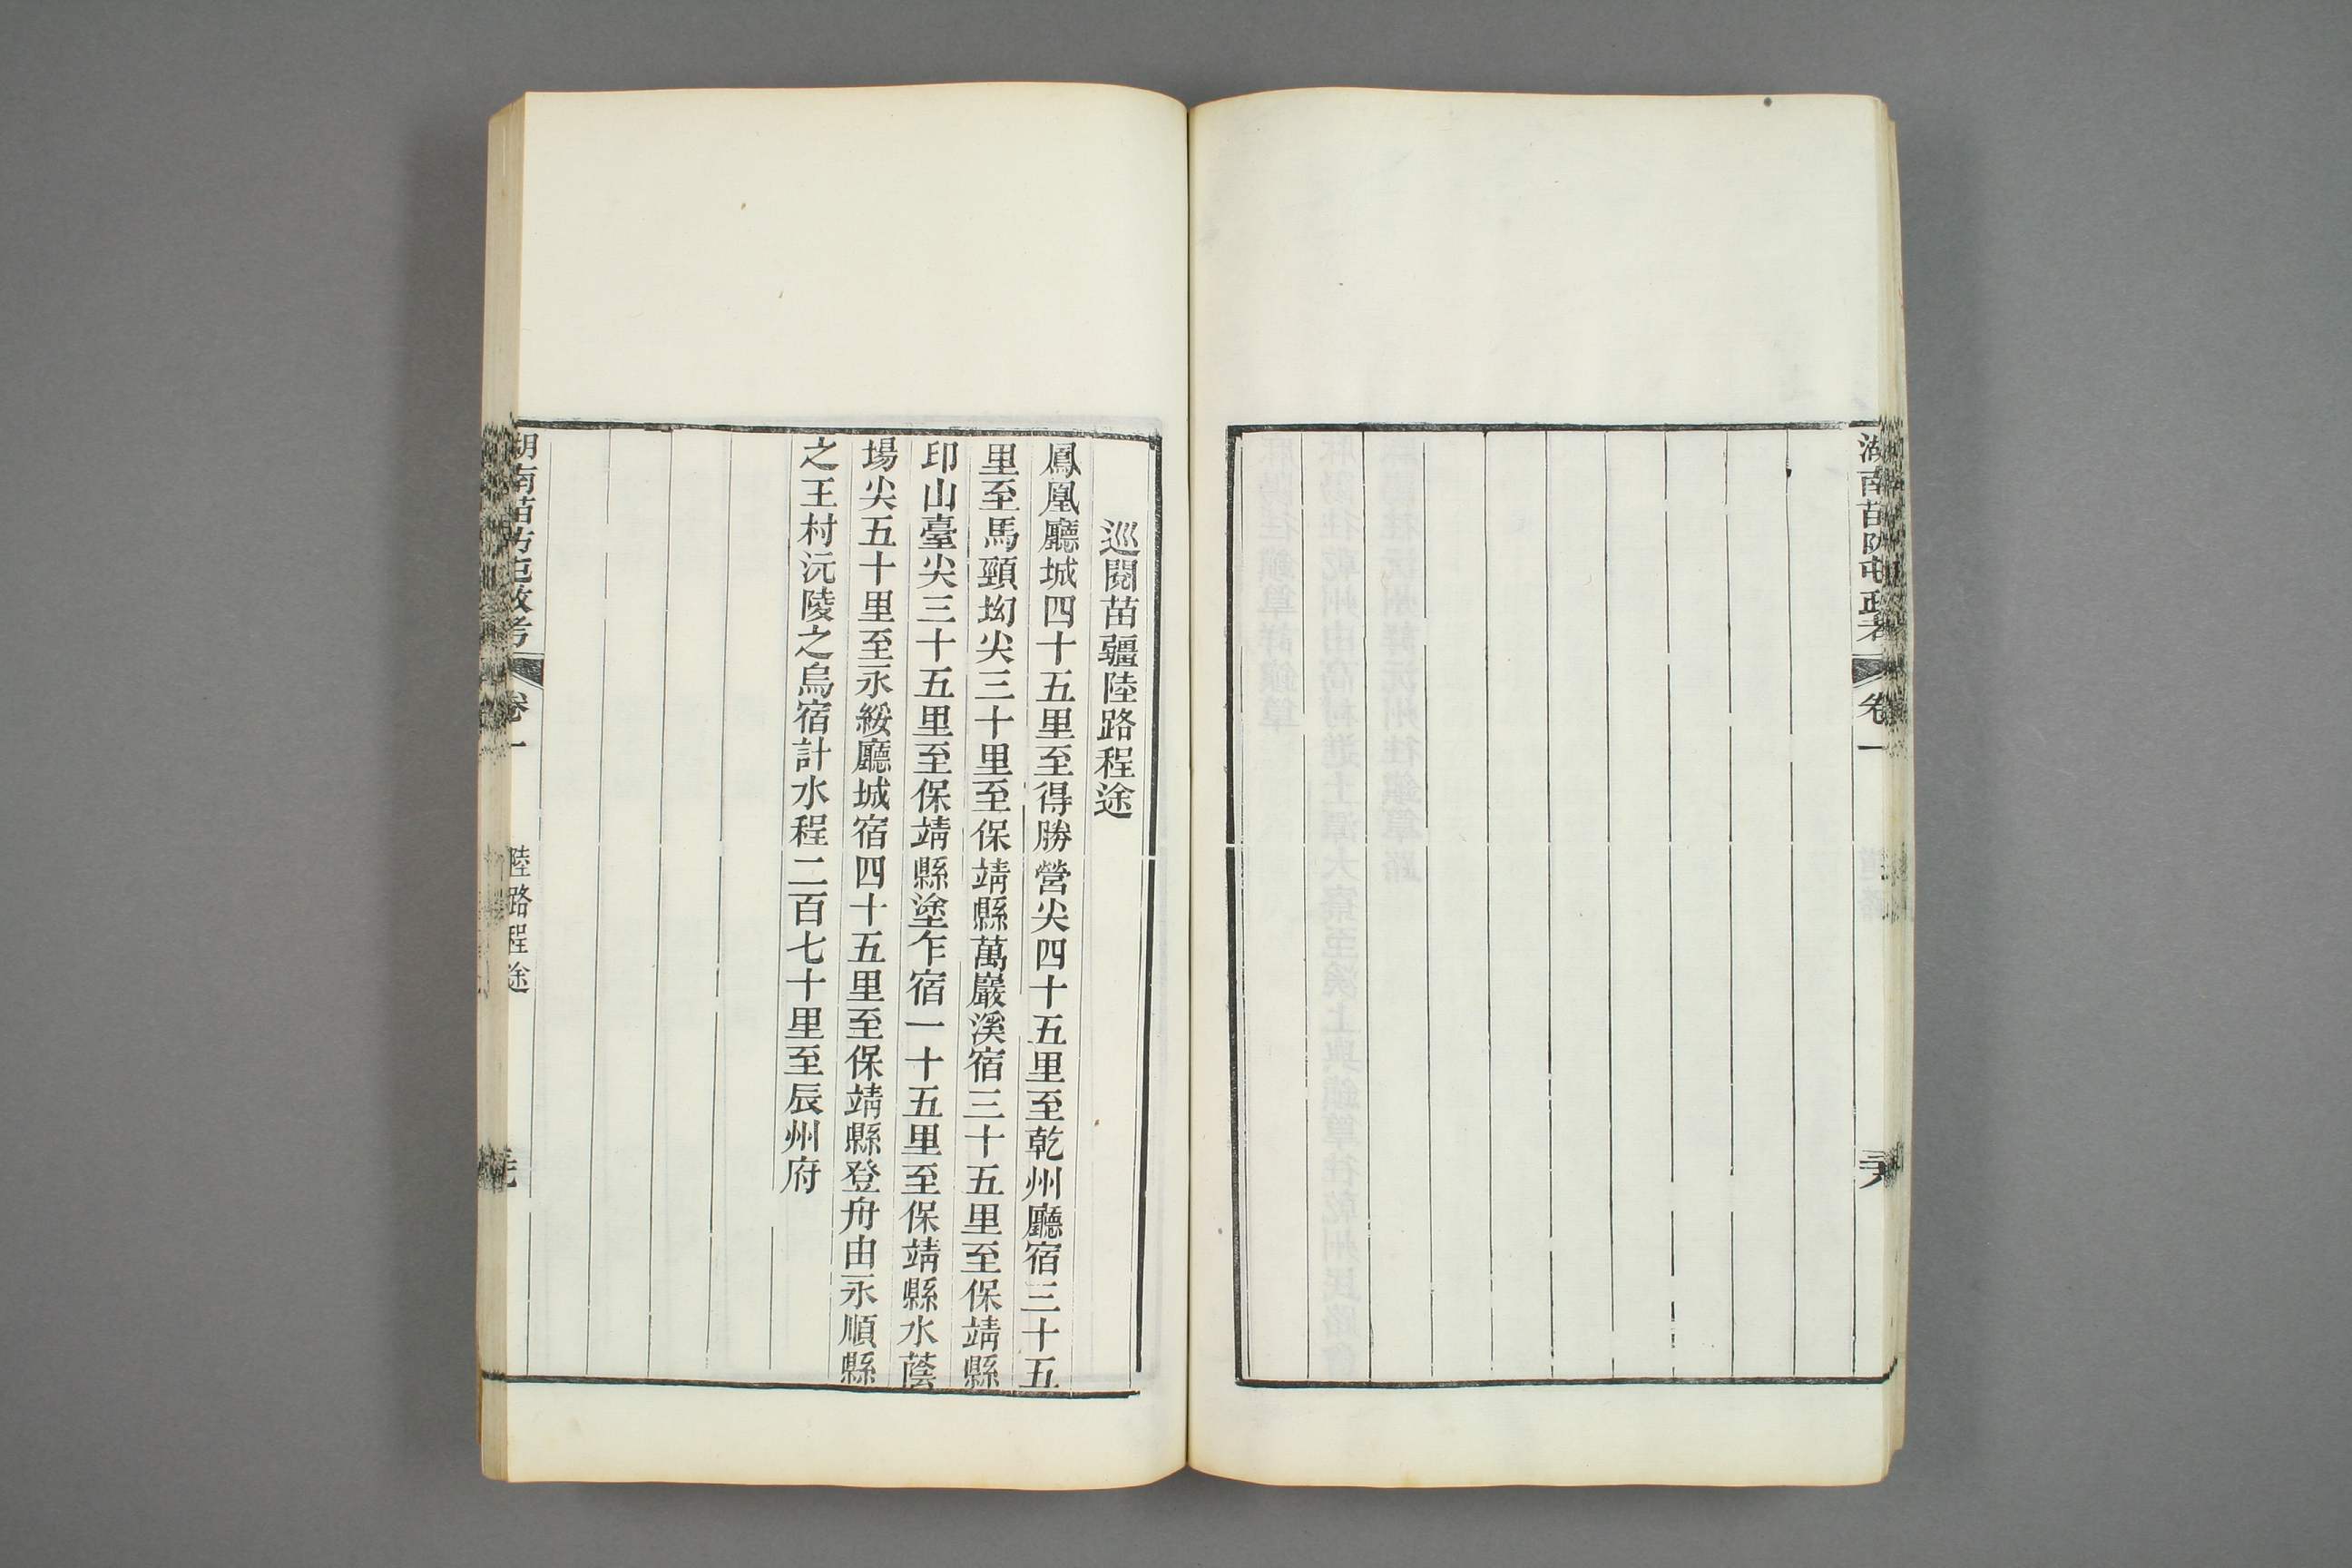 湖南苗防屯政考
卷一
巡閱苗疆陸路程途
鳳凰廳城四十五里至得勝營尖四十五里至乾州廳宿三十五
里至馬頸坳尖三十里至保靖縣萬巖溪宿三十五里至保靖縣
印山臺尖三十五里至保靖縣塗乍宿一十五里至保靖縣水蔭
場尖五十里至永綏廳城宿四十五里至保靖縣登舟由永順縣
之王村沅陵之烏宿計水程二百七十里至辰州府
湖南苗防屯政考
卷一
陸路程途